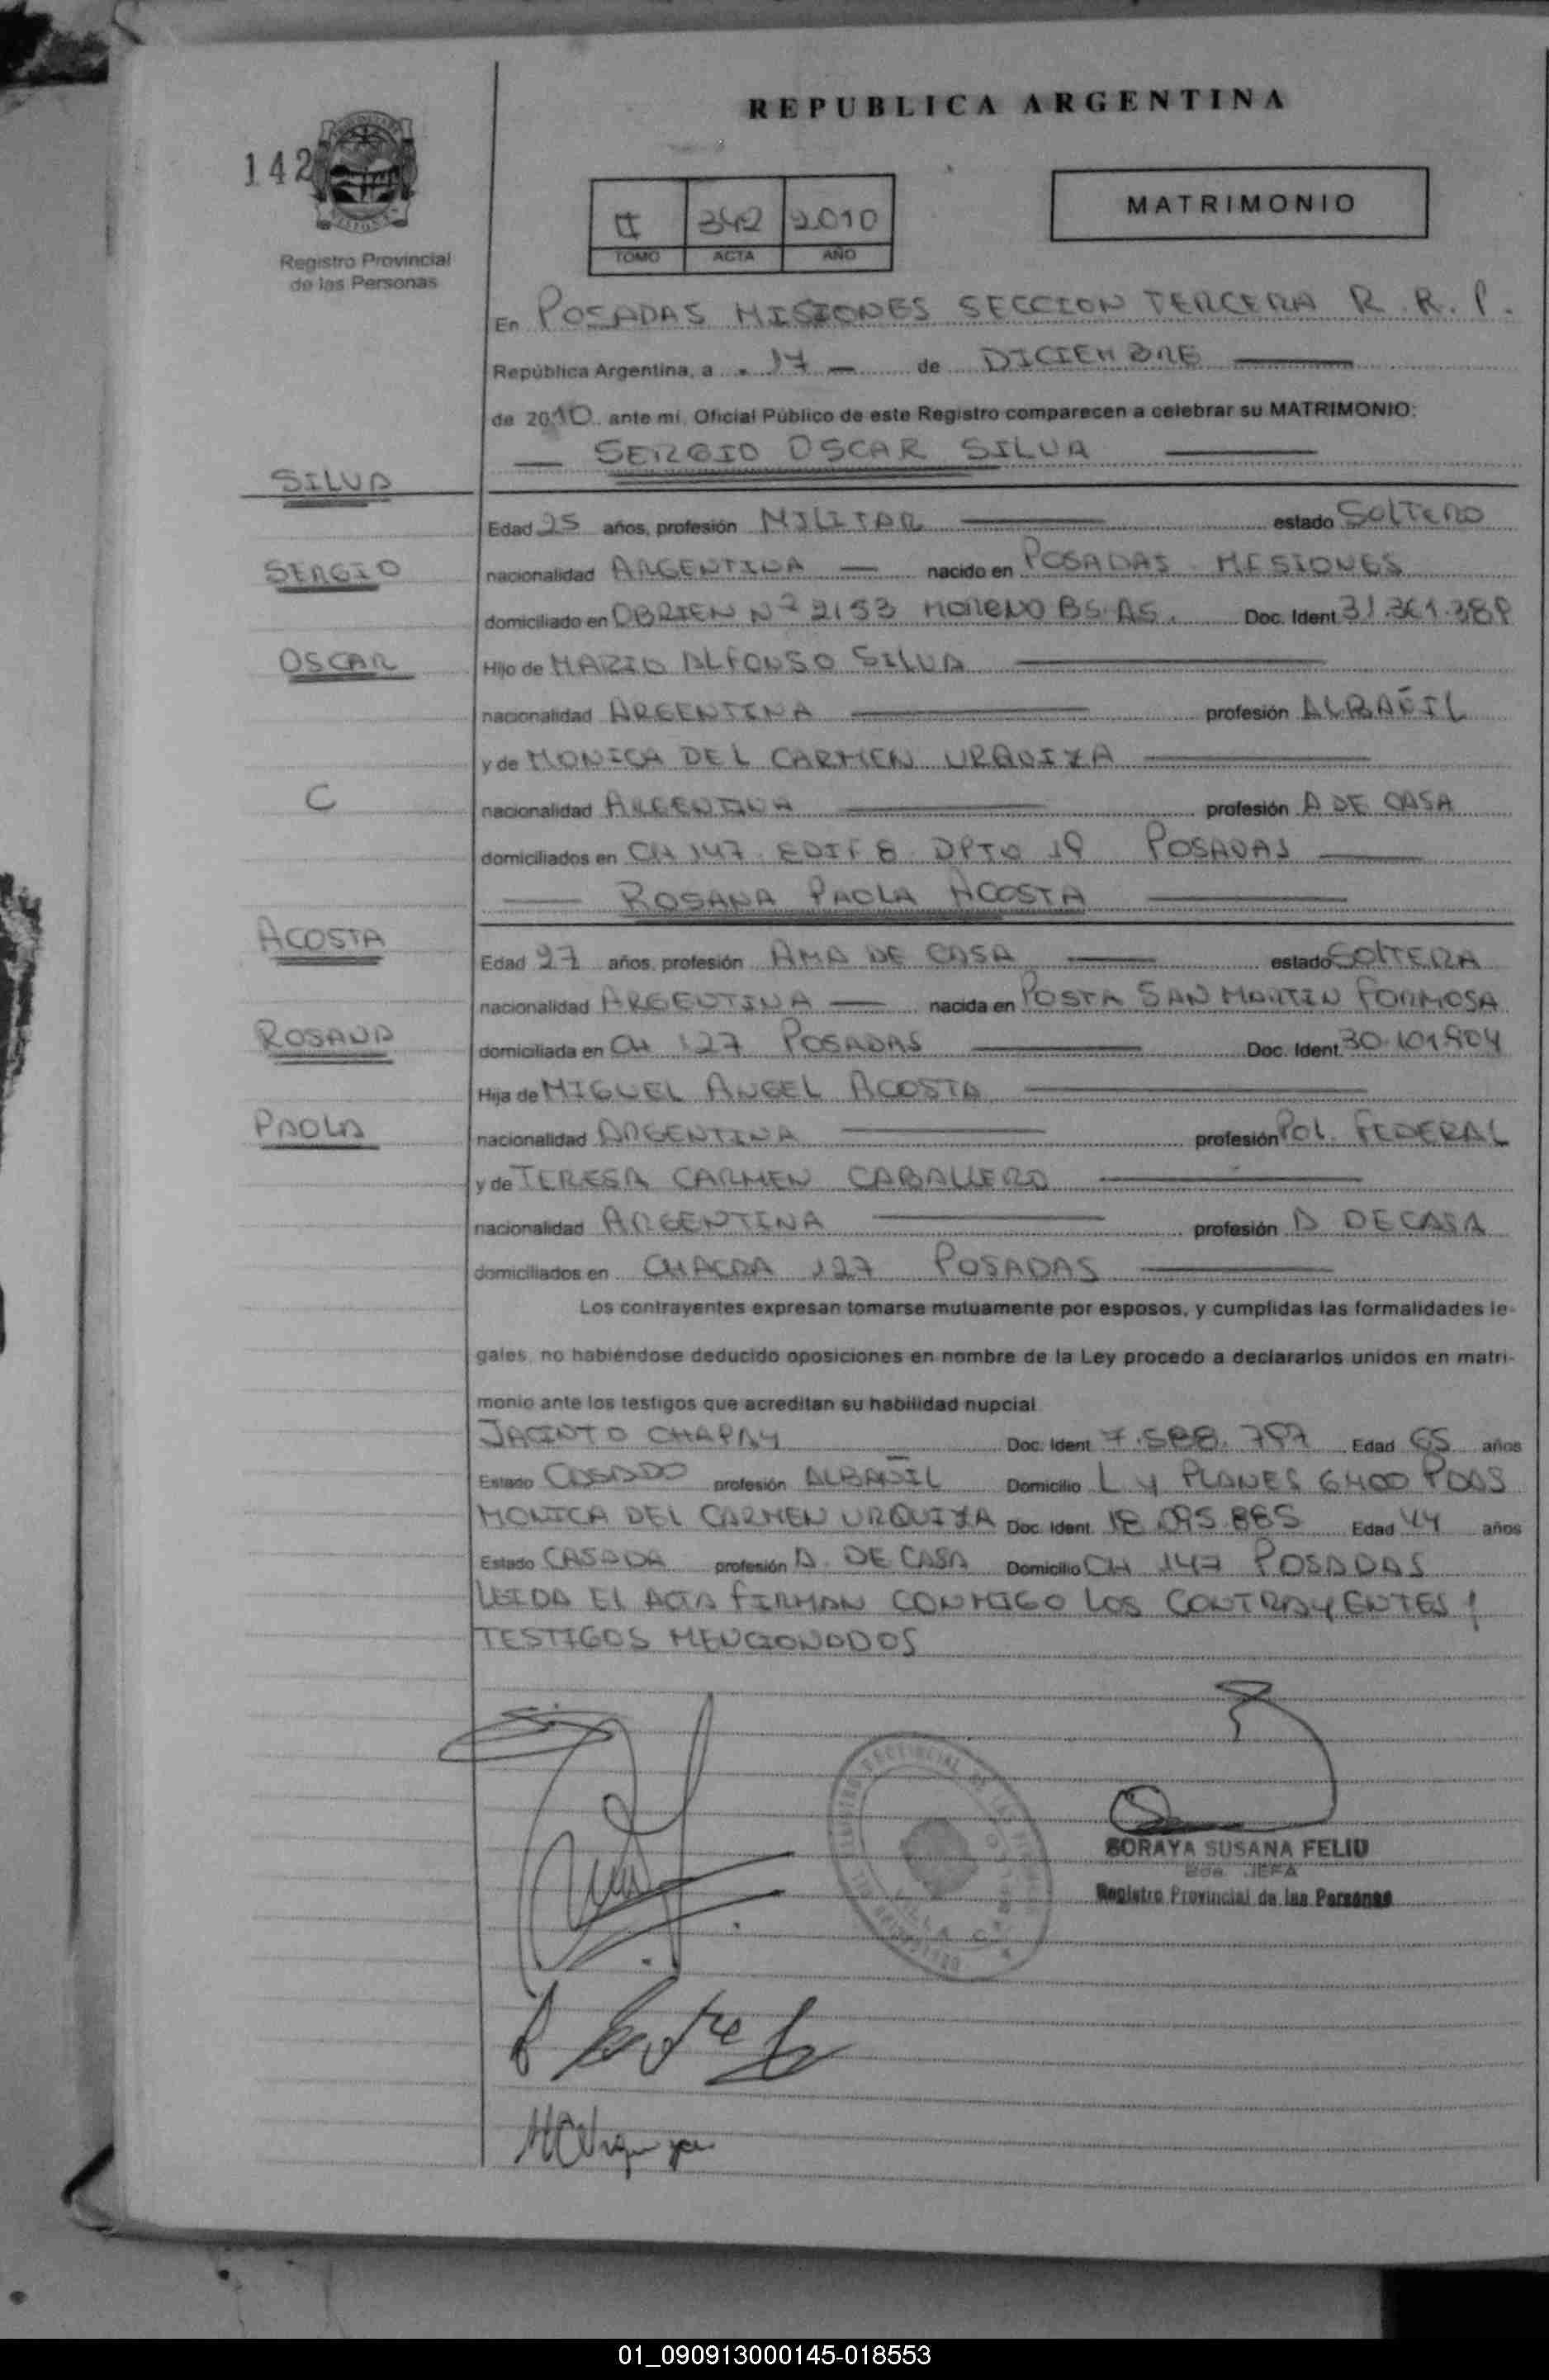 REPUBLICA ARGENTINA
142
MATRIMONIO
II 342 2010
TOMO ACTA AÑO
Registro Provincial
de las Personas
En POSADAS MISIONES SECCION TERCERA R. R. P.
República Argentina, a 17 de DICIEMBRE
de 2010 ante mi, Oficial Público de este Registro comparecen a celebrar su MATRIMONIO:
SERGIO OSCAR SILVA
SILVA
Edad 25 años, profesión MILITAR estado SOLTERO
SERGIO
nacionalidad ARGENTINA nacido en POSADAS MISIONES
domiciliado en OBRIEN Nº 2153 MORENO BS. AS. Doc. Ident. 31.361.389
OSCAR
Hijo de MARIO ALFONSO SILVA
nacionalidad ARGENTINA profesión ALBAÑIL
y de MONICA DEL CARMEN URQUIZA
C
nacionalidad ARGENTINA profesión A DE CASA
domiciliados en CH 147 EDIF 8 DPTO 19 POSADAS
ROSANA PAOLA ACOSTA
ACOSTA
Edad 27 años, profesión AMA DE CASA estado SOLTERA
nacionalidad ARGENTINA nacida en POSTA SAN MARTIN FORMOSA
ROSANA
domiciliada en CH 127 POSADAS Doc. Ident.
Hija de MIGUEL ANGEL ACOSTA
PAOLA
nacionalidad ARGENTINA profesión POL. FEDERAL
y de TERESA CARMEN CABALLERO
nacionalidad ARGENTINA profesión A DE CASA
domiciliados en CHACRA 127 POSADAS
Los contrayentes expresan tomarse mutuamente por esposos, y cumplidas las formalidades le-
gales, no habiéndose deducido oposiciones en nombre de la Ley procedo a declararlos unidos en matri-
monio ante los testigos que acreditan su habilidad nupcial
JACINTO CHAPAY Doc. Ident. Edad 65 años
Estado CASADO profesión ALBAÑIL Domicilio L Y PLANES 6400 PDAS
MONICA DEL CARMEN URQUIZA Doc. Ident. 18.095.885 Edad 44 años
Estado CASADA profesión A. DE CASA Domicilio CH 147 POSADAS
LEIDA EL ACTA FIRMAN CONMIGO LOS CONTRAYENTES y
TESTIGOS MENCIONADOS
SORAYA SUSANA FELIU
JEFA
Registro Provincial de las Personas
MCUrquiza
01_090913000145-018553